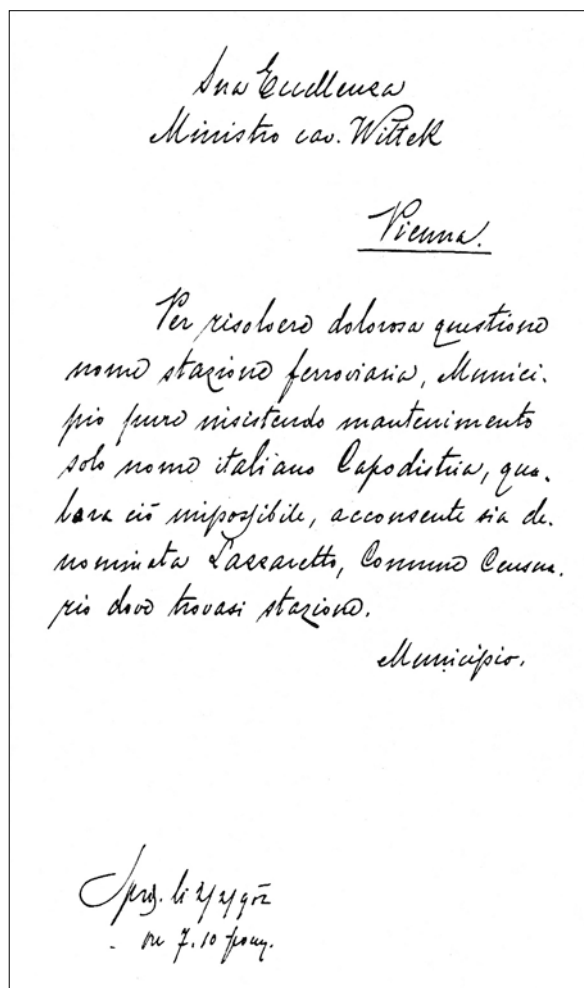 Sua Eccellenza
Ministro cav. Wittek
Vienna.
Per risolvere dolorosa questione
nome stazione ferroviaria, Munici-
pio pure insistendo mantenimento
solo nome italiano Capodistria, qua-
lora ciò impossibile, acconsente sia de-
nominata Lazzaretto, Comune Censua-
rio dove trovasi stazione.
Municipio.
Sped. li 2/2/902
ore 7.10 pom.